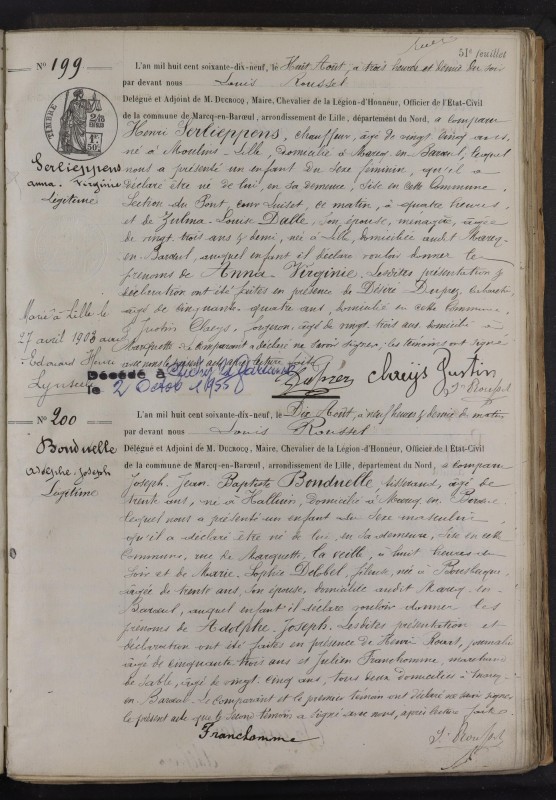 51e feuillet
No 199
L'an mil huit cent soixante-dix-neuf, le Huit Août, à trois heures et demie du soir
par devant nous Louis Rousset
Délégué et Adjoint de M. Ducrocq, Maire, Chevalier de la Légion-d'Honneur, Officier de l'Etat-Civil
de la commune de Marcq-en-Barœul, arrondissement de Lille, département du Nord, a comparu
Henri Serlieppens, chauffeur, âgé de vingt cinq ans,
né à Moulins-Lille, domicilié à Marcq-en-Barœul, lequel
nous a présenté un enfant du sexe féminin, qu'il a
déclaré être né de lui, en sa demeure, sise en cette Commune,
Section du Pont, cour Luiset, ce matin, à quatre heures,
et de Zulma-Louise Dalle, son épouse, ménagère, âgée
de vingt trois ans & demi, née à Lille, domiciliée audit Marcq-
en-Barœul, auquel enfant il déclare vouloir donner les
prénoms de Anna-Virginie. Lesdites présentation &
déclaration ont été faites en présence de Désiré Duprez, cabaretier,
âgé de cinquante quatre ans, domicilié en cette Commune
& Justin Claeys, forgeron, âgé de vingt trois ans, domicilié à
le comparant a déclaré ne savoir signer, les témoins ont signé
avec nous le présent acte après lecture faite
TIMBRE
Serlieppens
Anna-Virginie
Légitime
Marié à Lille le
27 avril 1903 avec
Edouard Henri
Décédé à
le 2 1955
Duprez Claeys Justin
Ls Rousset
No 200
L'an mil huit cent soixante-dix-neuf, le Dix Août, à neuf heures & demie du matin
par devant nous Louis Rousset
Délégué et Adjoint de M. Ducrocq, Maire, Chevalier de la Légion-d'Honneur, Officier de l'Etat-Civil
de la commune de Marcq-en-Barœul, arrondissement de Lille, département du Nord, a comparu
Joseph Jean Baptiste Bonduelle, tisserand, âgé de
trente ans, né à Halluin, domicilié à Marcq-en-Barœul
lequel nous a présenté un enfant du sexe masculin
qu'il a déclaré être né de lui, en sa demeure, sise en cette
Commune, rue de Marquette, la veille, à huit heures du
soir et de Marie-Sophie Delobel, fileuse, née à Bousbecque,
âgée de trente ans, son épouse, domiciliée audit Marcq-en-
Barœul, auquel enfant il déclare vouloir donner les
prénoms de Adolphe-Joseph. Lesdites présentation et
déclaration ont été faites en présence de Henri journalier
âgé de cinquante trois ans et Julien Franchomme, marchand
de sable, âgé de vingt-cinq ans, tous deux domiciliés à Marcq-
en-Barœul. Le comparant et le premier témoin ont déclaré ne savoir signer
le présent acte que le second témoin a signé avec nous, après lecture faite
Bonduelle
Adolphe-Joseph
Légitime
Franchomme
Ls Rousset